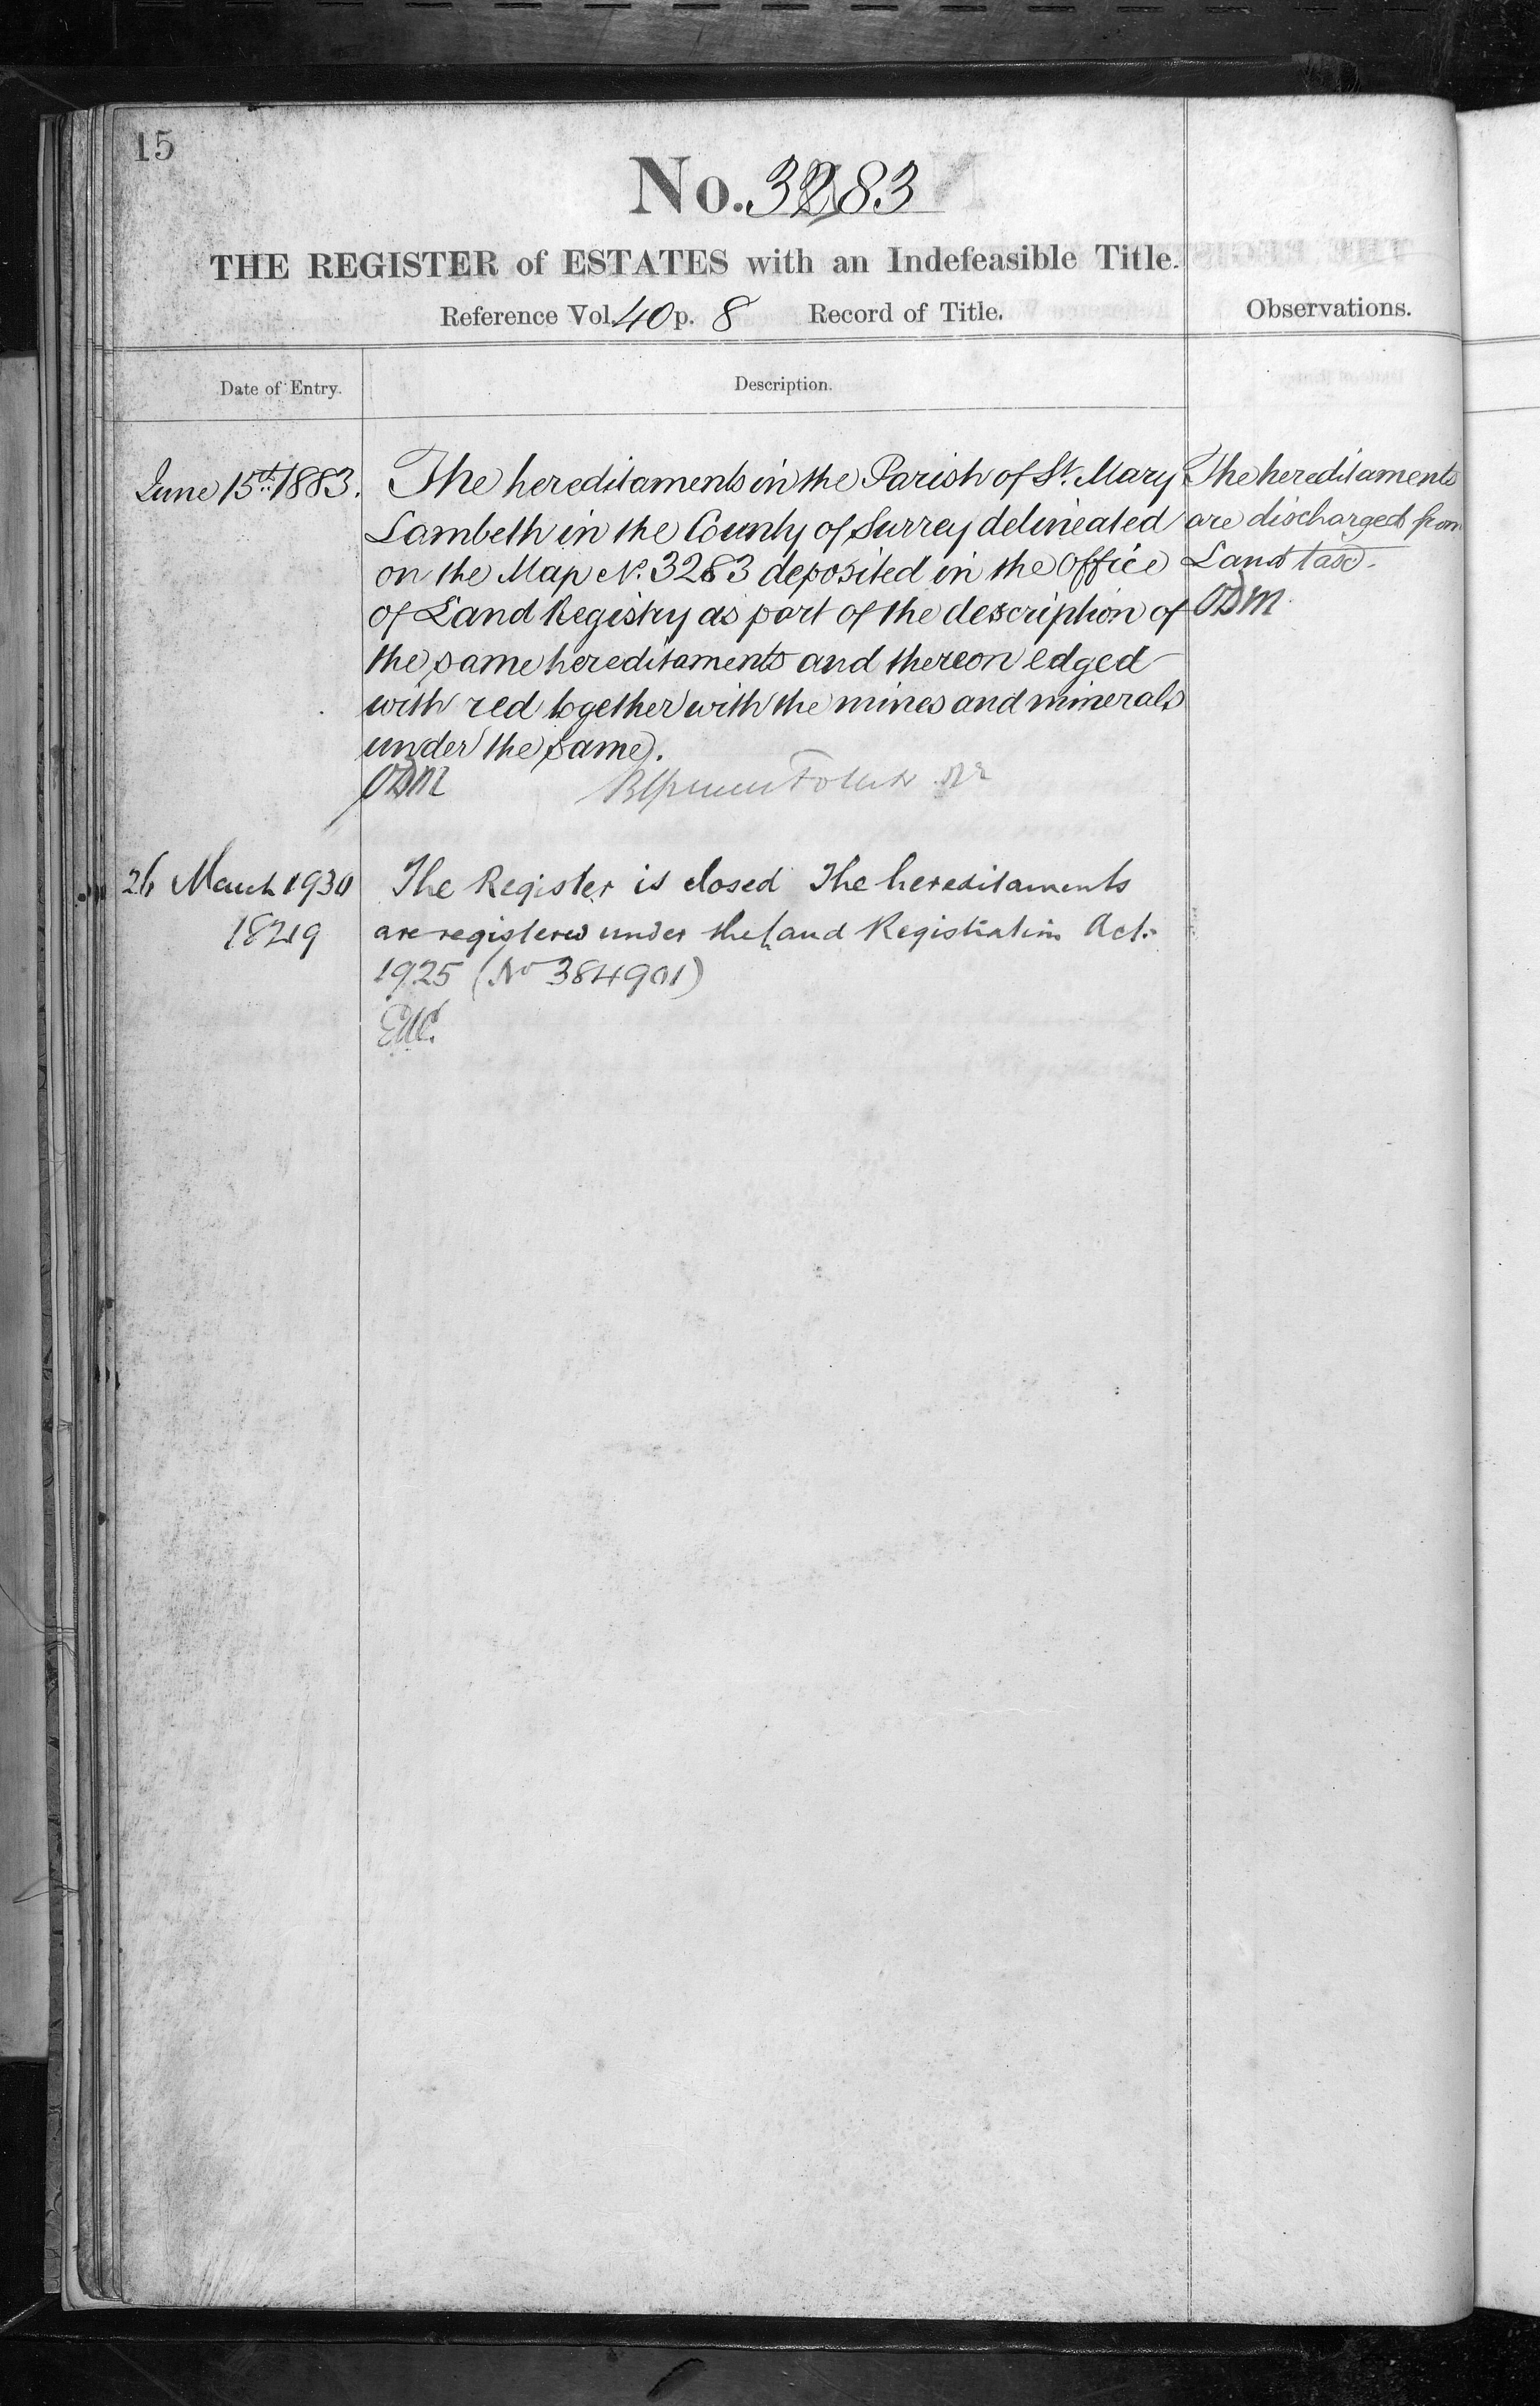 15
No. 3283
THE REGISTER of ESTATES with an Indefeasible Title.
Reference Vol. 40 p. 8 Record of Title.
Observations.
Date of Entry.
Description.
June 15th 1883.
The hereditaments in the Parish of St. Mary
Lambeth in the County of Surrey delineated
on the Map No. 3283 deposited in the Office
of Land Registry as part of the description of
the same hereditaments and thereon edged
with red together with the mines and minerals
under the same.
ODM
The hereditaments
are discharged from
Land tax.
ODM
26 March 1930
18219
The Register is closed The hereditaments
are registered under the Land Registration Act
1925 (No 384901)